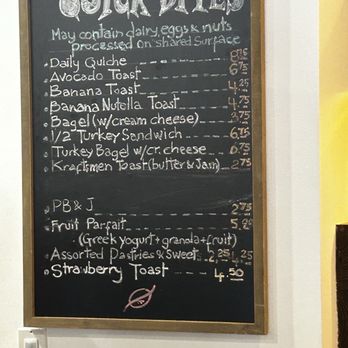 QUICK BITES
May contain dairy, eggs & nuts
processed on shared surface
Daily Quiche 8.75
Avocado Toast 6.75
Banana Toast 4.25
Banana Nutella Toast 4.75
Bagel (w/cream cheese) 3.75
1/2 Turkey Sandwich 6.75
Turkey Bagel w/cr. cheese 6.75
Kraftsmen Toast (butter & Jam) 2.75
PB & J 2.75
Fruit Parfait 5.20
(Greek yogurt + granola + fruit)
Assorted Pastries & Sweets 2.25 4.25
Strawberry Toast 4.50